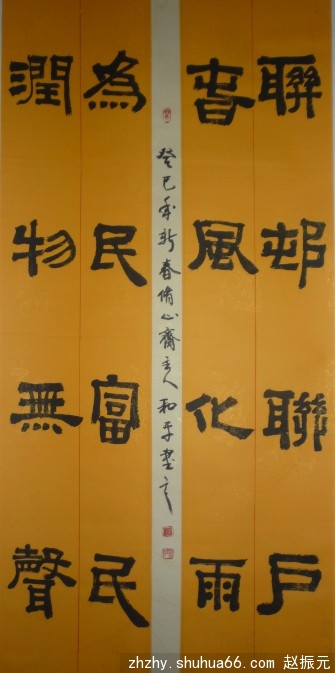 聯邨聯户
春風化雨
癸巳年新春 心齋主人和平
為民富民
潤物無聲
zhzhy.shuhua66.com 赵振元